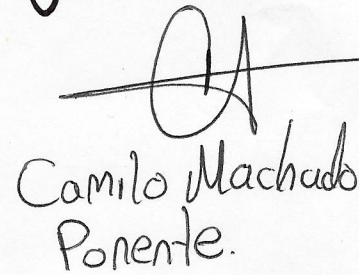 Camilo Machado
Ponente.